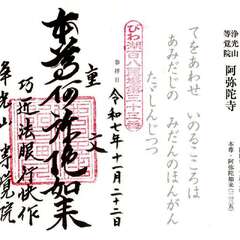 浄光山
等覚院
阿弥陀寺
本尊・阿弥陀如来
てをあわせ いのるこころは
あみだじの みだんのほんがん
たゞしんじつつ
びわ湖百八霊場第二十三番
参拝日
令和七年十一月二十二日
重文
本尊阿弥陀如来
巧匠法眼行快作
浄光山 等覚院